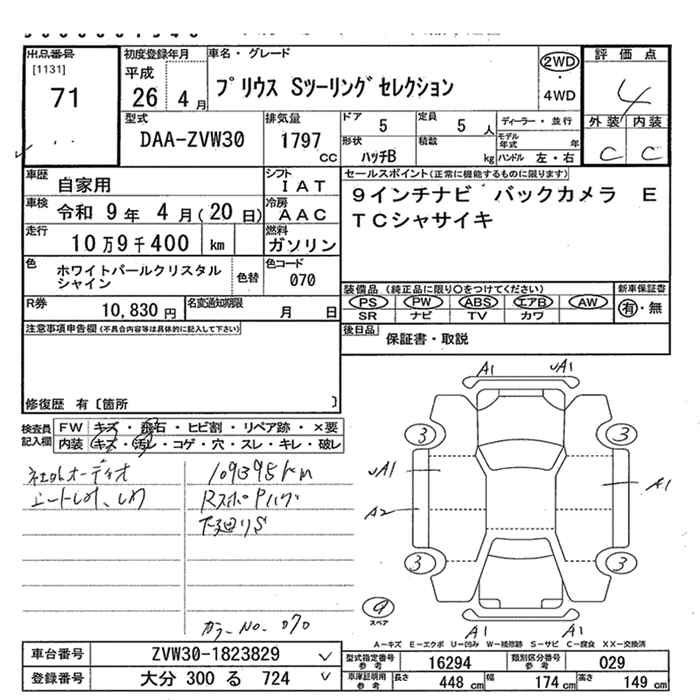 出品番号
[1131]
71
初度登録年月
平成
26 4 月
車名・グレード
プリウス Sツーリングセレクション
2WD
・
4WD
評価点
4
外装 内装
C C
型式
DAA-ZVW30
排気量
1797
cc
ドア 5
定員 5 人
ディーラー・並行
形状 ハッチB
積載 kg
モデル年式 年
ハンドル 左・右
車歴
自家用
シフト
IAT
車検
令和 9年 4月(20日)
冷房
AAC
走行
10万9千400 km
燃料
ガソリン
色
ホワイトパールクリスタル
シャイン
色替
色コード
070
R券
10,830 円
名変通知期限
月 日
セールスポイント(正常に機能するものに限ります)
9インチナビ バックカメラ E
TCシャサイキ
装備品 (純正品に限り○をつけてください)
PS PW ABS エアB AW
SR ナビ TV カワ
新車保証書
有・無
後日品
保証書・取説
注意事項申告欄(不具合内容等は具体的に記入して下さい)
修復歴 有〔箇所 〕
検査員
記入欄
FW キズ・飛石・ヒビ割・リペア跡・×要
内装 キズ・汚レ・コゲ・穴・スレ・キレ・破レ
109395km
下廻りS
カラーNo. 070
A1
A1
3
3
A1
A1
A2
3
3
9
スペア
A1
A1
A-キズ E-エクボ U-凹み W-補修跡 S-サビ C-腐食 XX-交換済
車台番号
ZVW30-1823829
登録番号
大分 300 る 724
型式指定番号
参考
16294
類別区分番号
参考
029
車庫証明用
参考
長さ 448 cm
幅 174 cm
高さ 149 cm